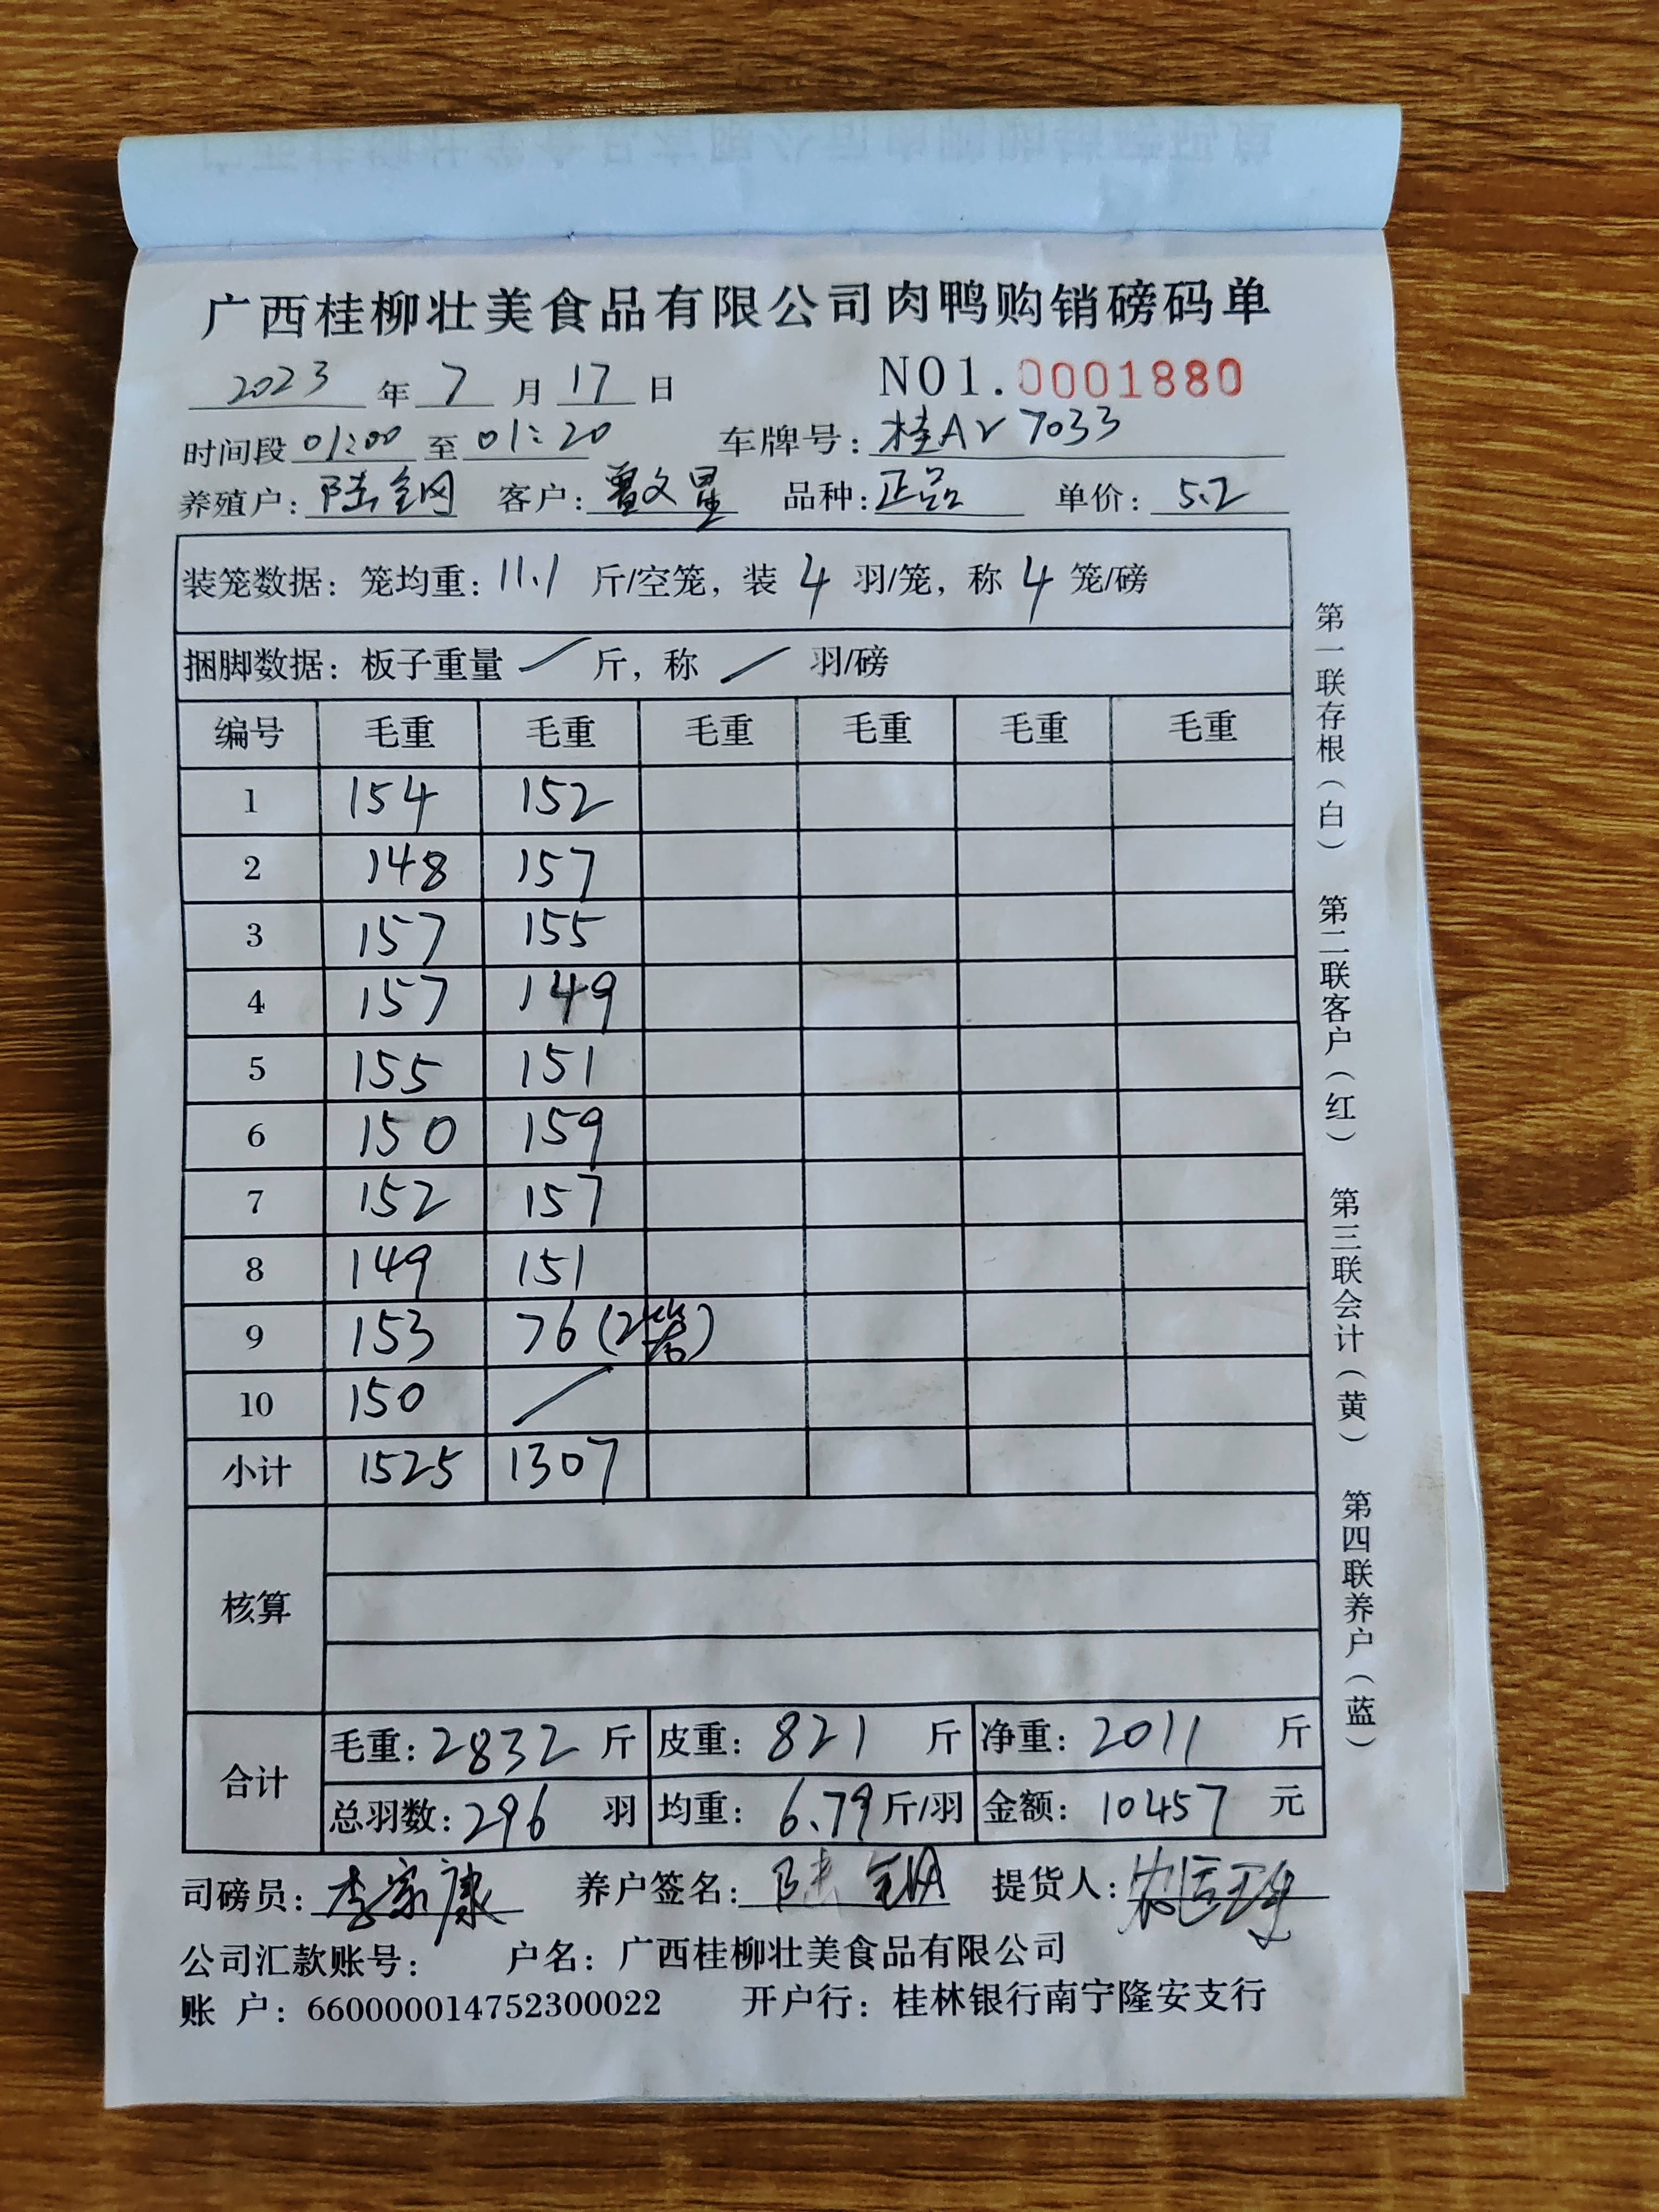 广西桂柳壮美食品有限公司肉鸭购销磅码单
2023 年 7 月 17 日 NO1.0001880
时间段 01:00 至 01:20 车牌号: 桂AV7033
养殖户: 陆 客户: 曹文星 品种: 正品 单价: 5.2
装笼数据: 笼均重: 11.1 斤/空笼, 装 4 羽/笼, 称 4 笼/磅
捆脚数据: 板子重量 / 斤, 称 / 羽/磅
编号 毛重 毛重 毛重 毛重 毛重 毛重
1 154 152
2 148 157
3 157 155
4 157 149
5 155 151
6 150 159
7 152 157
8 149 151
9 153 76(2笼)
10 150 /
小计 1525 1307
核算
合计 毛重: 2832 斤 皮重: 821 斤 净重: 2011 斤
总羽数: 296 羽 均重: 6.79 斤/羽 金额: 10457 元
司磅员: 李家康 养户签名: 陆 提货人:
公司汇款账号: 户名: 广西桂柳壮美食品有限公司
账 户: 660000014752300022 开户行: 桂林银行南宁隆安支行
第一联存根(白) 第二联客户(红) 第三联会计(黄) 第四联养户(蓝)